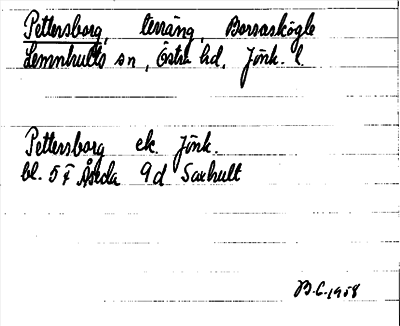 Pettersborg, terräng, Borsaskögle
Lemnhults sn, Östra hd, Jönk. l.
Pettersborg ek. Jönk.
bl. 5F Åseda 9d Saxhult
B.G. 1958